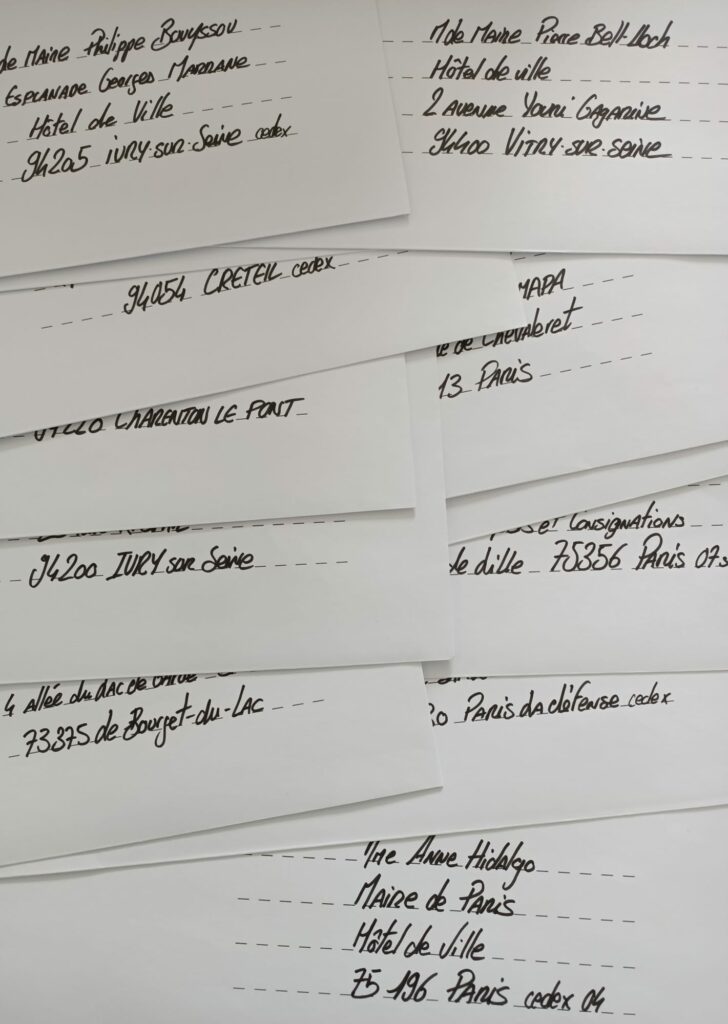 de Maire Philippe Bouyssou
Esplanade Georges Marrane
Hôtel de Ville
94205 IVRY-SUR-Seine cedex
M de Maire Pierre Bell-Lloch
Hôtel de ville
2 Avenue Youri Gagarine
94400 VITRY-SUR-SEINE
94054 CRETEIL cedex
MAPA
de Chevaleret
13 PARIS
CHARENTON LE PONT
94200 IVRY sur Seine
et Consignations
de dille 75356 Paris 07
4 Allée du LAC de
73375 de Bourget-du-LAC
PARIS da défense cedex
Mme Anne Hidalgo
Maire de Paris
Hôtel de Ville
75 196 PARIS cedex 04